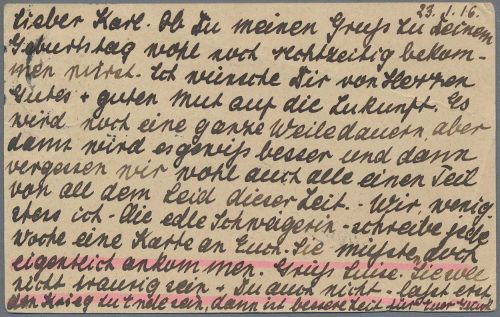 23.1.16.
Lieber Karl. Ob Du meinen Gruß zu Deinem
Geburtstag wohl noch rechtzeitig bekom-
men wirst. Ich wünsche Dir von Herzen
Gutes + guten Mut auf die Zukunft. Es
wird noch eine ganze Weile dauern, aber
dann wird es gewiß besser und dann
vergessen wir wohl auch alle einen Teil
von all dem Leid dieser Zeit. - Wir, wenig
stens ich - die edle Schwägerin - schreibe jede
Woche eine Karte an Euch. Sie müßte doch
eigentlich ankommen. Grüß Sie
nicht traurig sein + Du auch nicht - laßt erst
den Krieg zu Ende sein, dann ist bessere Zeit für